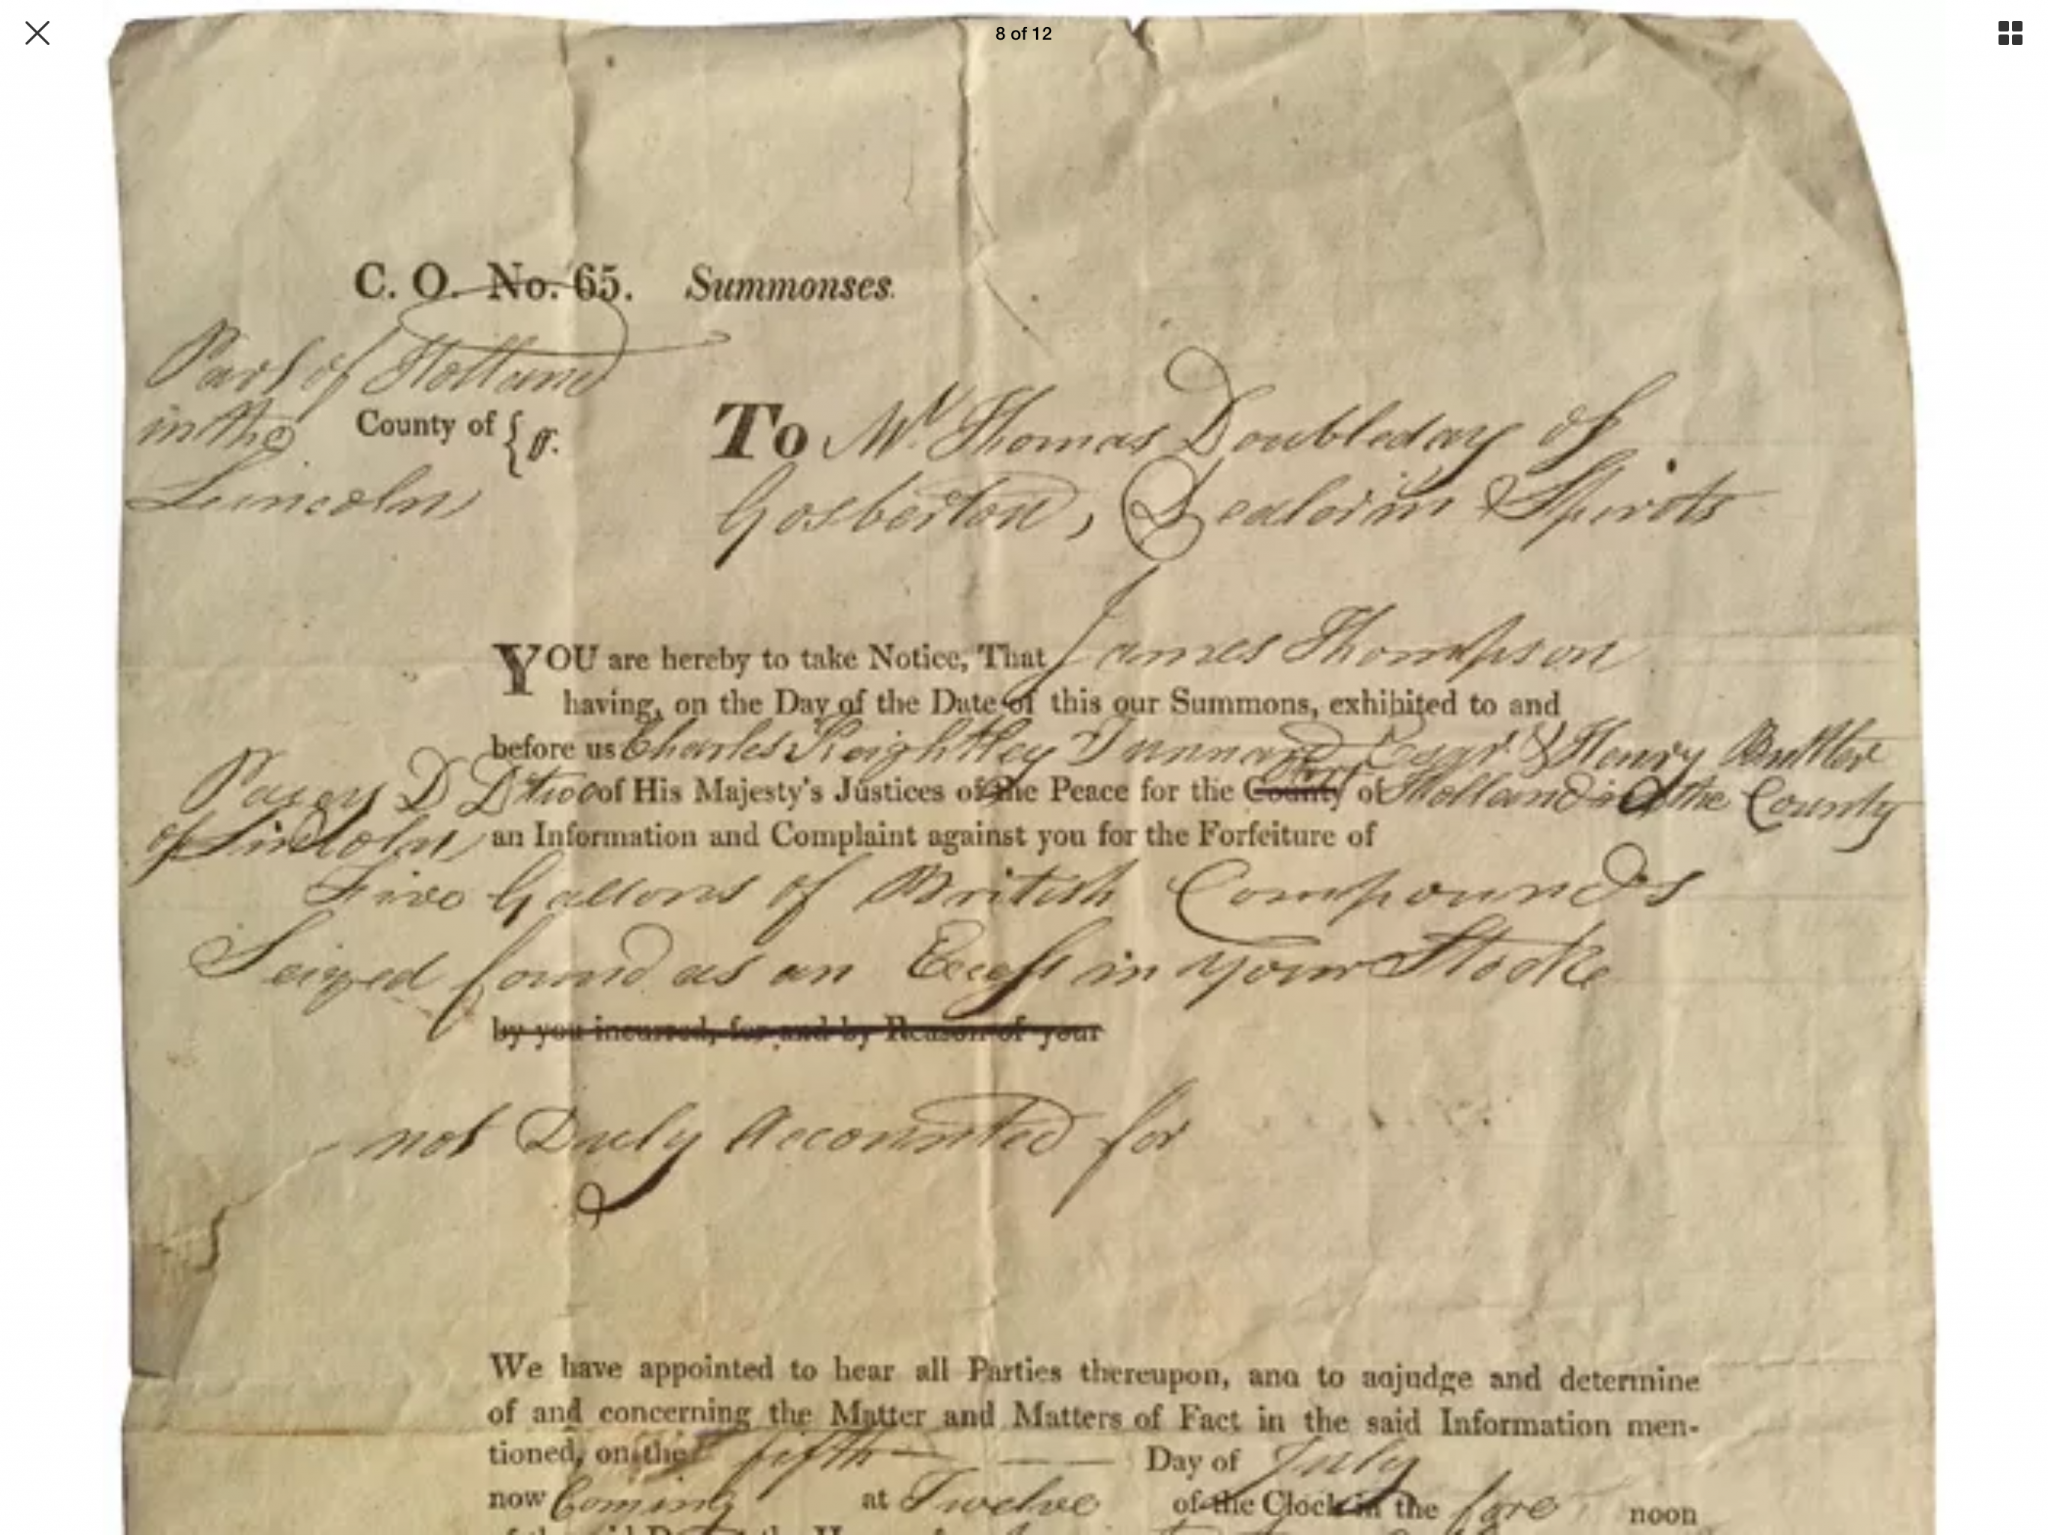 8 of 12
C. O. No. 65. Summonses.
Part of Holland
in the County of { ss.
Lincoln
To Mr. Thomas Doubleday of
Gosberton, Dealer in Spirits
YOU are hereby to take Notice, That James Thompson
having, on the Day of the Date of this our Summons, exhibited to and
before us Charles Keightley Tunnard Esqr. & Henry Butler
Pacey D D two of His Majesty's Justices of the Peace for the County Part of Holland in the County
of Lincoln an Information and Complaint against you for the Forfeiture of
Five Gallons of British Compounds
Seized found as an Excess in your Stock
by you incurred, for and by Reason of your
not Duly Accounted for
We have appointed to hear all Parties thereupon, and to adjudge and determine
of and concerning the Matter and Matters of Fact in the said Information men-
tioned, on the fifth Day of July
now Coming at Twelve of the Clock in the fore noon